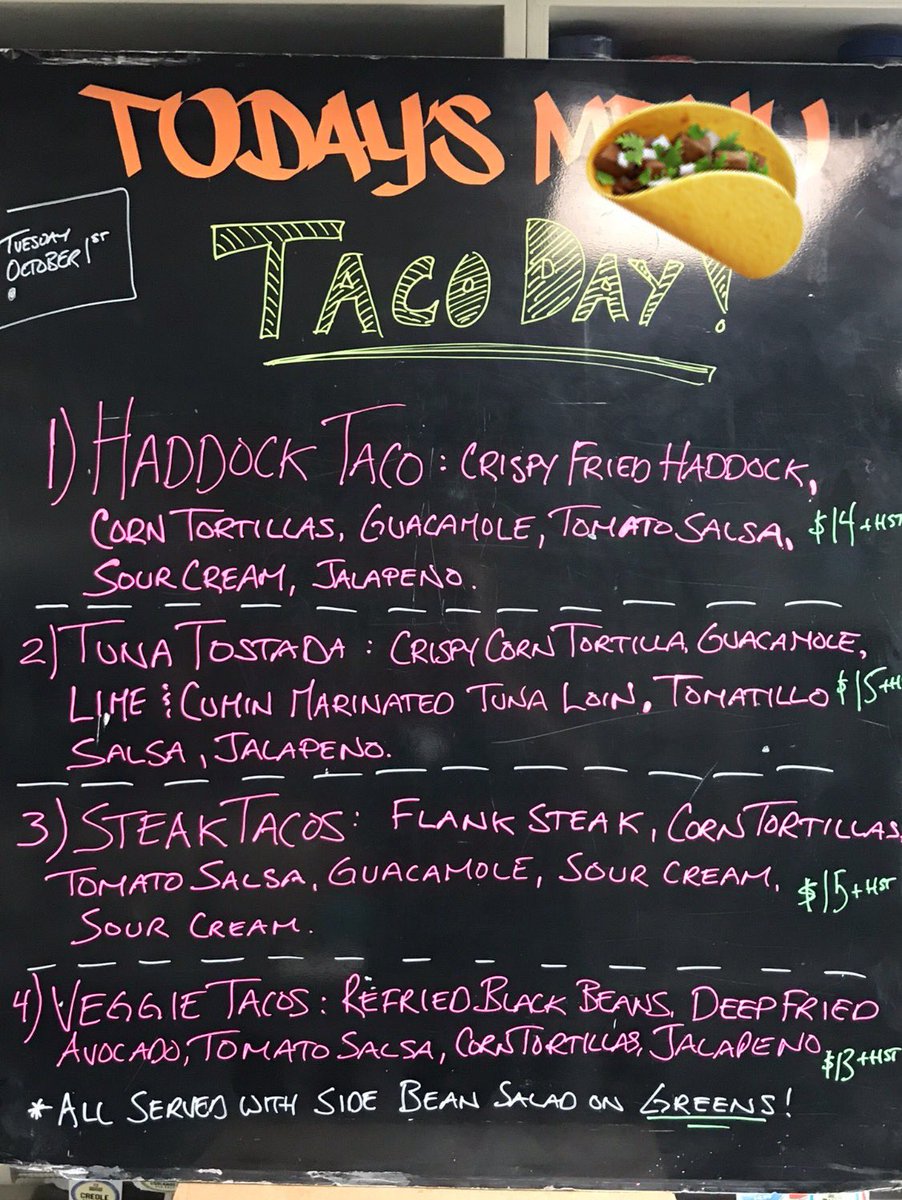 TODAY'S MENU
TUESDAY
OCTOBER 1ST
TACO DAY!
1) HADDOCK TACO: CRISPY FRIED HADDOCK,
CORN TORTILLAS, GUACAMOLE, TOMATO SALSA, $14+HST
SOUR CREAM, JALAPENO.
2) TUNA TOSTADA: CRISPY CORN TORTILLA, GUACAMOLE,
LIME & CUMIN MARINATED TUNA LOIN, TOMATILLO $15+H
SALSA, JALAPENO.
3) STEAK TACOS: FLANK STEAK, CORN TORTILLAS,
TOMATO SALSA, GUACAMOLE, SOUR CREAM, $15+HST
SOUR CREAM.
4) VEGGIE TACOS: REFRIED BLACK BEANS, DEEP FRIED
AVOCADO, TOMATO SALSA, CORN TORTILLAS, JALAPENO $13+HST
*ALL SERVED WITH SIDE BEAN SALAD ON GREENS!
CREOLE